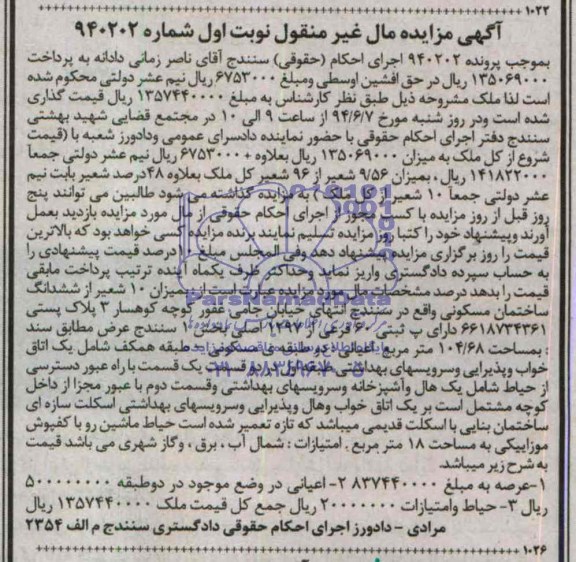 ۱۰۲۲
آگهی مزایده مال غیر منقول نوبت اول شماره ۹۴۰۲۰۲
بموجب پرونده ۹۴۰۲۰۲ اجرای احکام (حقوقی) سنندج آقای ناصر زمانی دادانه به پرداخت
۱۳۵۰۶۹۰۰۰ ریال در حق افشین اوسطی ومبلغ ۶۷۵۳۰۰۰ ریال نیم عشر دولتی محکوم شده
است لذا ملک مشروحه ذیل طبق نظر کارشناس به مبلغ ۱۳۵۷۴۴۰۰۰۰ ریال قیمت گذاری
شده است ودر روز شنبه مورخ ۹۴/۶/۷ از ساعت ۹ الی ۱۰ در مجتمع قضایی شهید بهشتی
سنندج دفتر اجرای احکام حقوقی با حضور نماینده دادسرای عمومی ودادورز شعبه با (قیمت
شروع از کل ملک به میزان ۱۳۵۰۶۹۰۰۰ ریال بعلاوه + ۶۷۵۳۰۰۰ ریال نیم عشر دولتی جمعاً
۱۴۱۸۲۲۰۰۰ ریال ، بمیزان ۹/۵۶ شعیر از ۹۶ شعیر کل ملک بعلاوه ۴۸درصد شعیر بابت نیم
عشر دولتی جمعاً ۱۰ شعیر از کل ملک ) به مزایده گذاشته می شود طالبین می توانند پنج
روز قبل از روز مزایده با کسب مجوز از اجرای احکام حقوقی از مال مورد مزایده بازدید بعمل
آورند وپیشنهاد خود را کتباً روز مزایده تسلیم نمایند برنده مزایده کسی خواهد بود که بالاترین
قیمت را روز برگزاری مزایده پیشنهاد دهد وفی المجلس مبلغ ۱۰درصد قیمت پیشنهادی را
به حساب سپرده دادگستری واریز نماید وحداکثر ظرف یکماه آینده ترتیب پرداخت مابقی
قیمت را بدهد درصد مشخصات مال مورد مزایده عبارت است از: بمیزان ۱۰ شعیر از ششدانگ
ساختمان مسکونی واقع در سنندج انتهای خیابان جامی غفور کوچه کوهسار ۳ پلاک پستی
۶۶۱۸۷۳۴۳۶۱ دارای پ ثبتی ۶۰ فرعی از ۱۲۹۷ اصلی بخش ۱ سنندج عرض مطابق سند
: بمساحت ۱۰۴/۶۸ متر مربع اعیانی : دو طبقه ی مسکونی - طبقه همکف شامل یک اتاق
خواب وپذیرایی وسرویسهای بهداشتی طبقه اول در دو قسمت یک قسمت با راه عبور دسترسی
از حیاط شامل یک هال وآشپزخانه وسرویسهای بهداشتی وقسمت دوم با عبور مجزا از داخل
کوچه مشتمل است بر یک اتاق خواب وهال وپذیرایی وسرویسهای بهداشتی اسکلت سازه ای
ساختمان بنایی با اسکلت قدیمی میباشد که تازه تعمیر شده است حیاط ماشین رو با کفپوش
موزاییکی به مساحت ۱۸ متر مربع . امتیازات : شمال آب ، برق ، وگاز شهری می باشد قیمت
به شرح زیر میباشد.
۱-عرصه به مبلغ ۸۳۷۴۴۰۰۰۰ ۲- اعیانی در وضع موجود در دوطبقه ۵۰۰۰۰۰۰۰۰
ریال ۳- حیاط وامتیازات ۲۰۰۰۰۰۰۰ ریال جمع کل قیمت ملک ۱۳۵۷۴۴۰۰۰۰ ریال
مرادی - دادورز اجرای احکام حقوقی دادگستری سنندج م الف ۲۳۵۴
۱۰۲۶
ParsNamadData